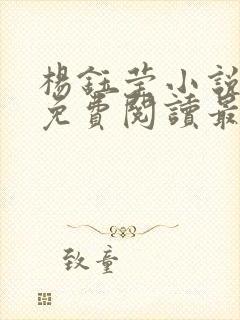 楊鈺莹小說
免費閱讀最
致童